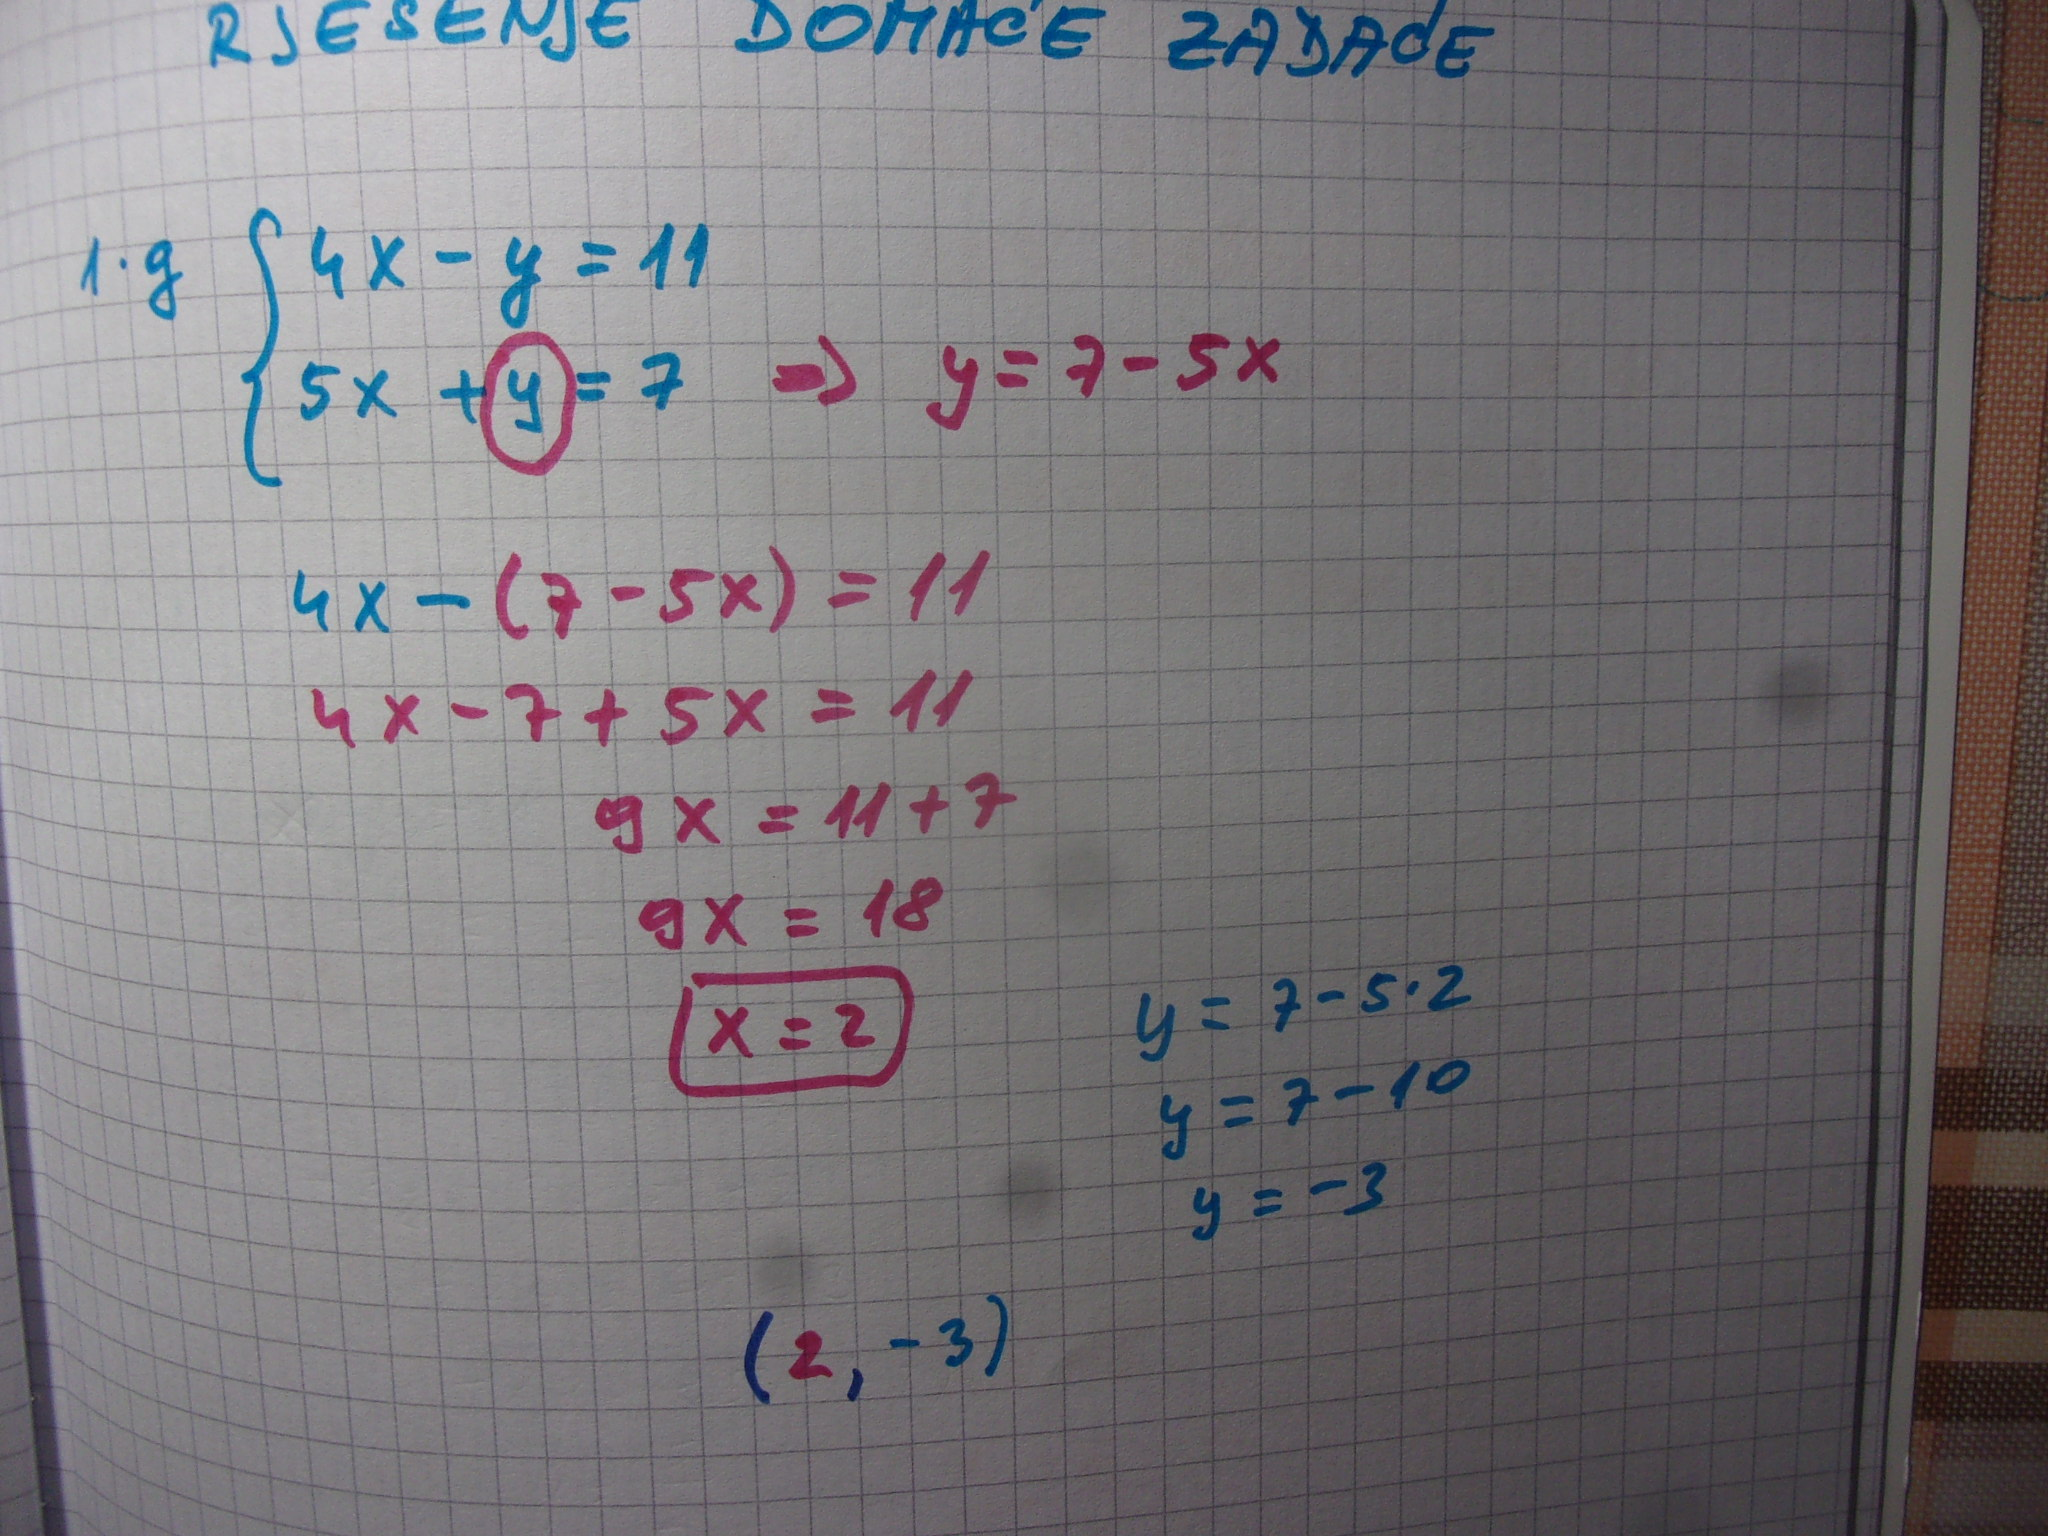 RJEŠENJE DOMAĆE ZADAĆE
1.g { 4x - y = 11
5x + y = 7 => y = 7 - 5x
4x - (7 - 5x) = 11
4x - 7 + 5x = 11
9x = 11 + 7
9x = 18
x = 2
y = 7 - 5·2
y = 7 - 10
y = -3
(2, -3)